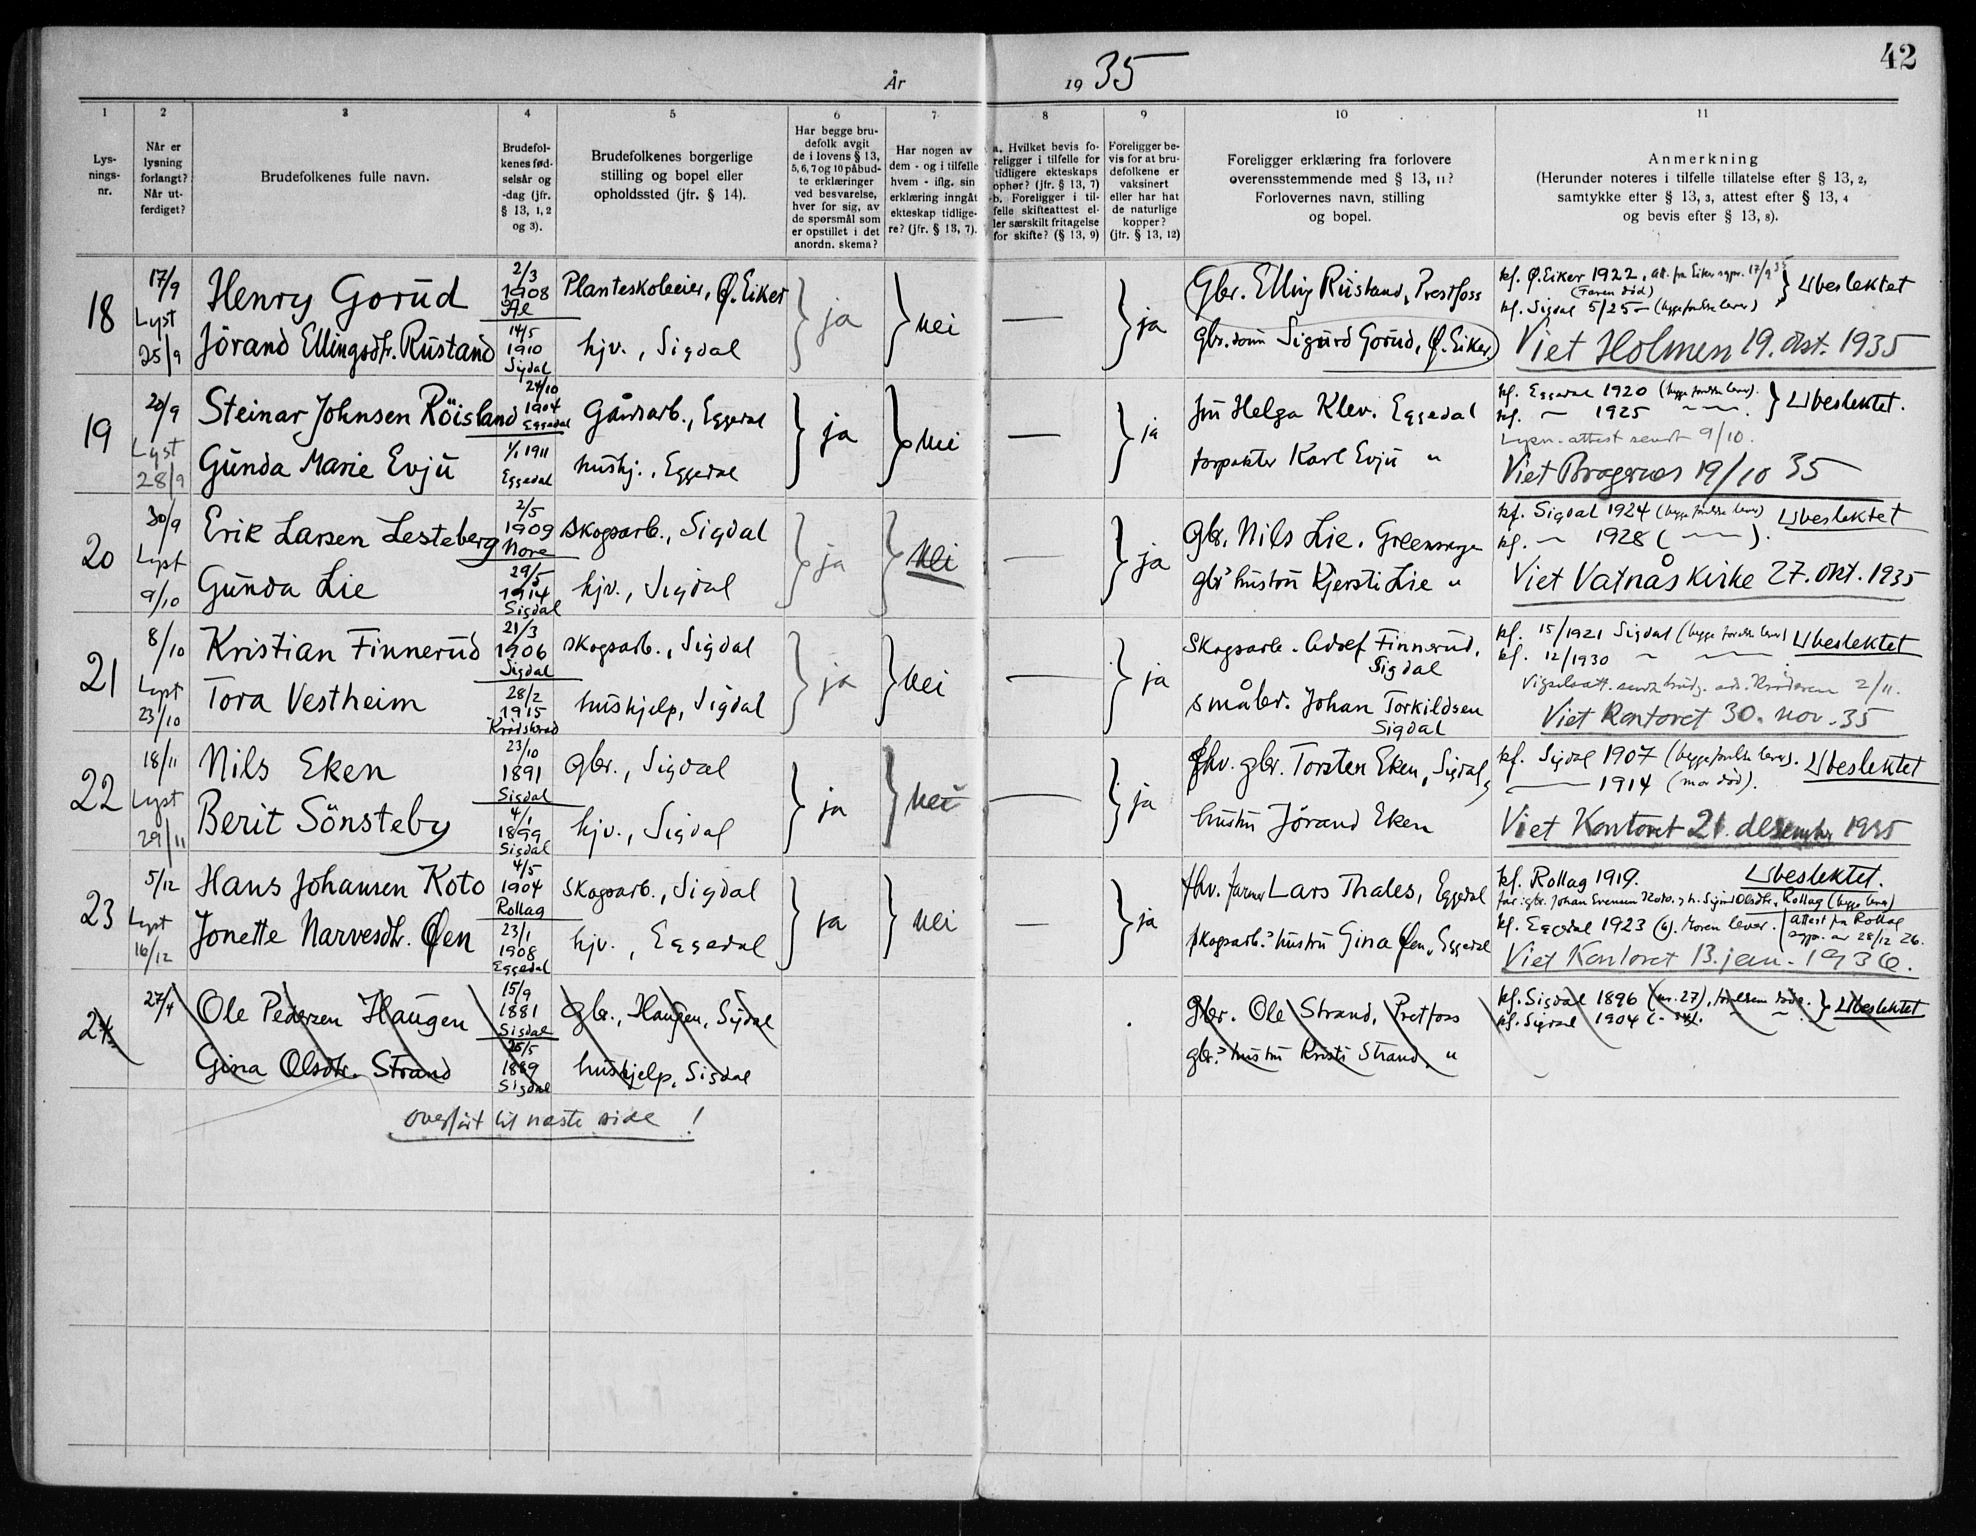 42
År 1935
1 2 3 4 5 6 7 8 9 10 11
Lys-
nings-
nr.
Når er
lysning
forlangt?
Når ut-
ferdiget?
Brudefolkenes fulle navn.
Brudefol-
kenes fød-
selsår og
-dag (jfr.
§ 13, 1, 2
og 3).
Brudefolkenes borgerlige
stilling og bopel eller
opholdssted (jfr. § 14).
Har begge bru-
defolk avgit
de i lovens § 13,
5, 6, 7 og 10 påbud-
te erklæringer
ved besvarelse,
hver for sig, av
de spørsmål som
er opstillet i det
anordn. skema?
Har nogen av
dem - og i tilfelle
hvem - iflg. sin
erklæring inngått
ekteskap tidlige-
re? (jfr. § 13, 7).
a. Hvilket bevis fo-
religger i tilfelle for
tidligere ekteskaps
ophør? (jfr. § 13, 7)
b. Foreligger i til-
felle skifteattest el-
ler særskilt fritagelse
for skifte? (§ 13, 9)
Foreligger be-
vis for at bru-
defolkene er
vaksinert
eller har hat
de naturlige
kopper?
(jfr. § 13, 12)
Foreligger erklæring fra forlovere
overensstemmende med § 13, 11?
Forlovernes navn, stilling
og bopel.
Anmerkning
(Herunder noteres i tilfelle tillatelse efter § 13, 2,
samtykke efter § 13, 3, attest efter § 13, 4
og bevis efter § 13, 8).
18
17/9
Lyst
25/9
Henry Gorud
Jörand Ellingsdtr. Rustand
2/3
1908
14/5
1910
Sigdal
Planteskoleeier, Ø. Eiker
hjv., Sigdal
ja
nei
—
ja
Gbr. Elling Rustand, Prestfoss
gbr.sönn Sigurd Gorud, Ø. Eiker.
kf. Ø. Eiker 1922, att. fra Eiker sgpr. 17/9 35
(Faren död)
kf. Sigdal 5/25 — (begge foreldre lever)
Ubeslektet
Viet Holmen 19. okt. 1935
19
20/9
Lyst
28/9
Steinar Johnsen Röisland
Gunda Marie Evju
24/10
1904
Eggedal
1/1 1911
Eggedal
Gårdsarb., Eggedal
hushj., Eggedal
ja
nei
—
ja
fru Helga Klev. Eggedal
forpakter Karl Evju "
kf. Eggedal 1920 (begge foreldre lever).
kf. — 1925 — —.
Ubeslektet.
Lysn. attest sendt 9/10.
Viet Bragernes 19/10 35
20
30/9
Lyst
9/10
Erik Larsen Lesteberg
Gunda Lie
2/5
1909
Nore
29/5
1914
Sigdal
skogsarb., Sigdal
hjv., Sigdal
ja
nei
—
ja
Gbr. Nils Lie. Greenskogen
gbr' hustru Kjersti Lie "
kf. Sigdal 1924 (begge foreldre lever)
kf. — 1928 ( — — ).
Ubeslektet
Viet Vatnås kirke 27. okt. 1935
21
8/10
Lyst
23/10
Kristian Finnerud
Tora Vestheim
21/3
1906
Sigdal
28/2
1915
Krødsherad
skogsarb., Sigdal
hushjelp, Sigdal
ja
nei
—
ja
Skogsarb. Adolf Finnerud,
Sigdal
småbr. Johan Torkildsen
Sigdal
kf. 15/1921 Sigdal (begge foreldre lever)
kf. 12/1930 — —
Ubeslektet
2/11.
Viet Kontoret 30. nov. 35
22
18/11
Lyst
29/11
Nils Eken
Berit Sönsteby
23/10
1891
Sigdal
4/1
1899
Sigdal
gbr., Sigdal
hjv., Sigdal
ja
nei
—
ja
fhv. gbr. Torsten Eken, Sigdal,
hustru Jörand Eken
kf. Sigdal 1907 (begge foreldre lever).
— 1914 (mor död).
Ubeslektet
Viet Kontoret 21. desember 1935
23
5/12
Lyst
16/12
Hans Johansen Koto
Jonette Narvesdtr. Øen
4/5
1904
Rollag
23/1
1908
Eggedal
skogsarb., Sigdal
hjv., Eggedal
ja
nei
—
ja
fhv. farmer Lars Thales, Eggedal
skogsarb.' hustru Gina Øen, Eggedal
kf. Rollag 1919.
Ubeslektet.
for: gbr. Johan Evensen Koto. og h. Sigrid Olsdtr., Rollag (begge lever)
kf. Eggedal 1923 (6). Moren lever.
attest fra Rollag
sgpr. av 28/12 26.
Viet Kontoret 13. jan. 1936.
24
27/4
Ole Pedersen Haugen
Gina Olsdtr. Strand
15/9
1881
Sigdal
25/5
1889
Sigdal
gbr., Haugen, Sigdal
hushjelp, Sigdal
gbr. Ole Strand, Pretfoss
gbr.' hustru Kristi Strand, "
kf. Sigdal 1896 (nr. 27), foreldrene döde.
kf. Sigdal 1904 (- 34). — —
Ubeslektet
overfört til næste side!